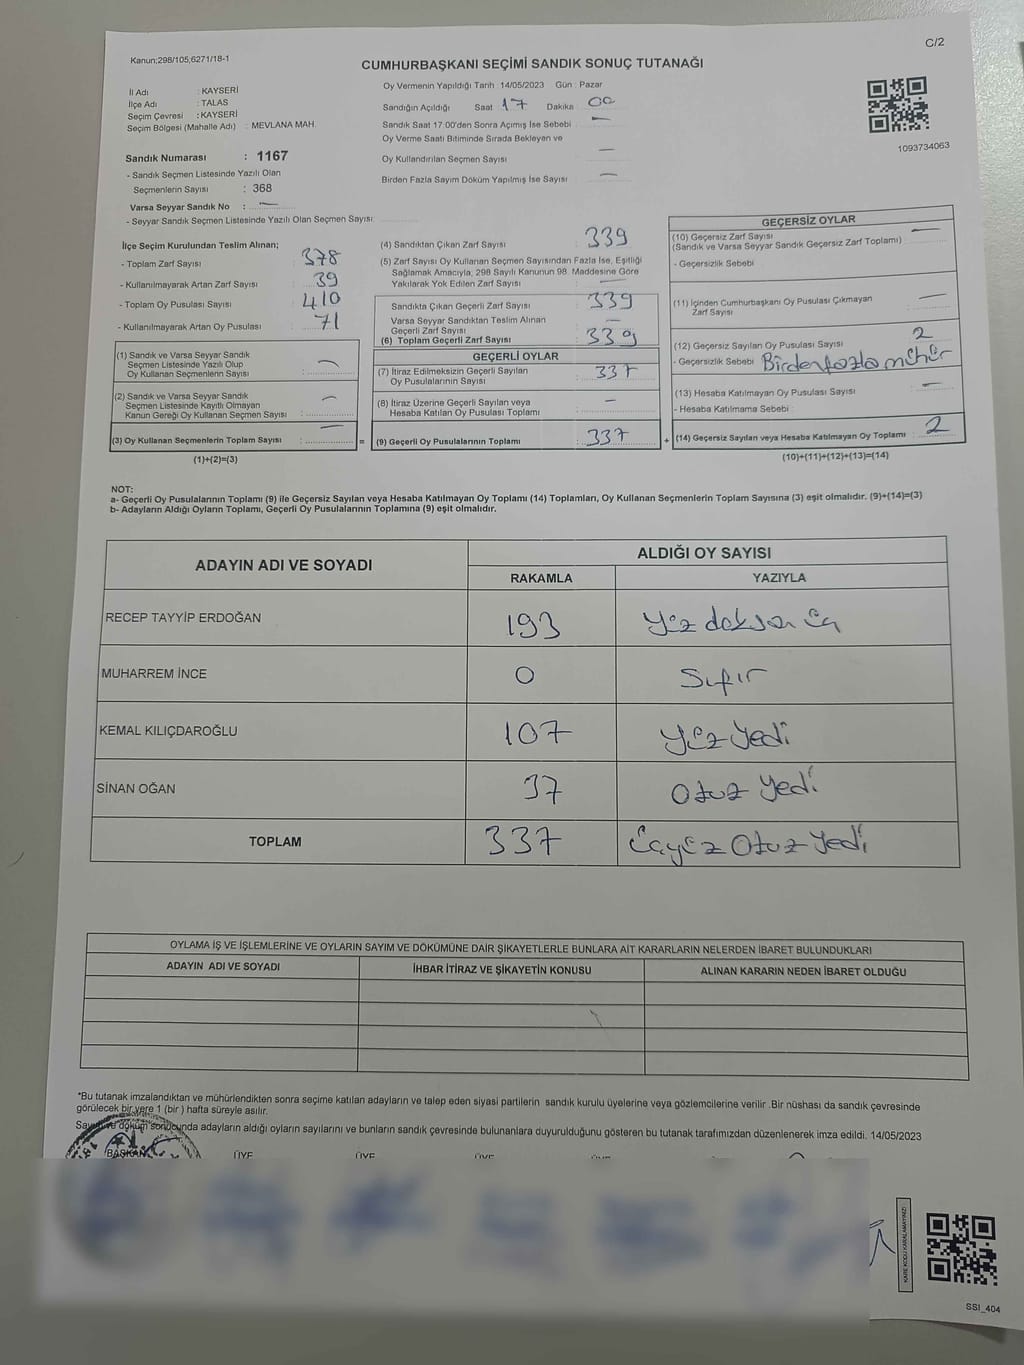 Kanun;298/105,6271/18-1
C/2
CUMHURBAŞKANI SEÇİMİ SANDIK SONUÇ TUTANAĞI
İl Adı : KAYSERİ
İlçe Adı : TALAS
Seçim Çevresi : KAYSERİ
Seçim Bölgesi (Mahalle Adı) : MEVLANA MAH.
Sandık Numarası : 1167
- Sandık Seçmen Listesinde Yazılı Olan
Seçmenlerin Sayısı : 368
Varsa Seyyar Sandık No : —
- Seyyar Sandık Seçmen Listesinde Yazılı Olan Seçmen Sayısı:
Oy Vermenin Yapıldığı Tarih : 14/05/2023 Gün : Pazar
Sandığın Açıldığı Saat 17 Dakika 00
Sandık Saat 17:00'den Sonra Açımış İse Sebebi : —
Oy Verme Saati Bitiminde Sırada Bekleyen ve
Oy Kullandırılan Seçmen Sayısı —
Birden Fazla Sayım Döküm Yapılmış İse Sayısı —
1093734063
İlçe Seçim Kurulundan Teslim Alınan;
- Toplam Zarf Sayısı : 378
- Kullanılmayarak Artan Zarf Sayısı : 39
- Toplam Oy Pusulası Sayısı : 410
- Kullanılmayarak Artan Oy Pusulası : 71
(1) Sandık ve Varsa Seyyar Sandık
Seçmen Listesinde Yazılı Olup
Oy Kullanan Seçmenlerin Sayısı : —
(2) Sandık ve Varsa Seyyar Sandık
Seçmen Listesinde Kayıtlı Olmayan
Kanun Gereği Oy Kullanan Seçmen Sayısı : —
(3) Oy Kullanan Seçmenlerin Toplam Sayısı : —
(1)+(2)=(3)
(4) Sandıktan Çıkan Zarf Sayısı : 339
(5) Zarf Sayısı Oy Kullanan Seçmen Sayısından Fazla İse, Eşitliği
Sağlamak Amacıyla, 298 Sayılı Kanunun 98. Maddesine Göre
Yakılarak Yok Edilen Zarf Sayısı : —
Sandıkta Çıkan Geçerli Zarf Sayısı : 339
Varsa Seyyar Sandıktan Teslim Alınan
Geçerli Zarf Sayısı : —
(6) Toplam Geçerli Zarf Sayısı : 339
GEÇERLİ OYLAR
(7) İtiraz Edilmeksizin Geçerli Sayılan
Oy Pusulalarının Sayısı : 337
(8) İtiraz Üzerine Geçerli Sayılan veya
Hesaba Katılan Oy Pusulası Toplamı : —
= (9) Geçerli Oy Pusulalarının Toplamı : 337
GEÇERSİZ OYLAR
(10) Geçersiz Zarf Sayısı : —
(Sandık ve Varsa Seyyar Sandık Geçersiz Zarf Toplamı)
- Geçersizlik Sebebi
(11) İçinden Cumhurbaşkanı Oy Pusulası Çıkmayan
Zarf Sayısı : —
(12) Geçersiz Sayılan Oy Pusulası Sayısı : 2
- Geçersizlik Sebebi Birden fazla mühür
(13) Hesaba Katılmayan Oy Pusulası Sayısı : —
- Hesaba Katılmama Sebebi :
+ (14) Geçersiz Sayılan veya Hesaba Katılmayan Oy Toplamı : 2
(10)+(11)+(12)+(13)=(14)
NOT:
a- Geçerli Oy Pusulalarının Toplamı (9) ile Geçersiz Sayılan veya Hesaba Katılmayan Oy Toplamı (14) Toplamları, Oy Kullanan Seçmenlerin Toplam Sayısına (3) eşit olmalıdır. (9)+(14)=(3)
b- Adayların Aldığı Oyların Toplamı, Geçerli Oy Pusulalarının Toplamına (9) eşit olmalıdır.
ADAYIN ADI VE SOYADI
ALDIĞI OY SAYISI
RAKAMLA YAZIYLA
RECEP TAYYİP ERDOĞAN 193 Yüz doksan üç
MUHARREM İNCE 0 Sıfır
KEMAL KILIÇDAROĞLU 107 Yüz Yedi
SİNAN OĞAN 37 Otuz Yedi
TOPLAM 337 Üçyüz Otuz Yedi
OYLAMA İŞ VE İŞLEMLERİNE VE OYLARIN SAYIM VE DÖKÜMÜNE DAİR ŞİKAYETLERLE BUNLARA AİT KARARLARIN NELERDEN İBARET BULUNDUKLARI
ADAYIN ADI VE SOYADI İHBAR İTİRAZ VE ŞİKAYETİN KONUSU ALINAN KARARIN NEDEN İBARET OLDUĞU
*Bu tutanak imzalandıktan ve mühürlendikten sonra seçime katılan adayların ve talep eden siyasi partilerin sandık kurulu üyelerine veya gözlemcilerine verilir .Bir nüshası da sandık çevresinde
görülecek bir yere 1 (bir ) hafta süreyle asılır.
Sayım ve döküm sonucunda adayların aldığı oyların sayılarını ve bunların sandık çevresinde bulunanlara duyurulduğunu gösteren bu tutanak tarafımızdan düzenlenerek imza edildi. 14/05/2023
BAŞKAN ÜYE ÜYE ÜYE
KARE KODU KARALAMAYINIZ!
SSI_404